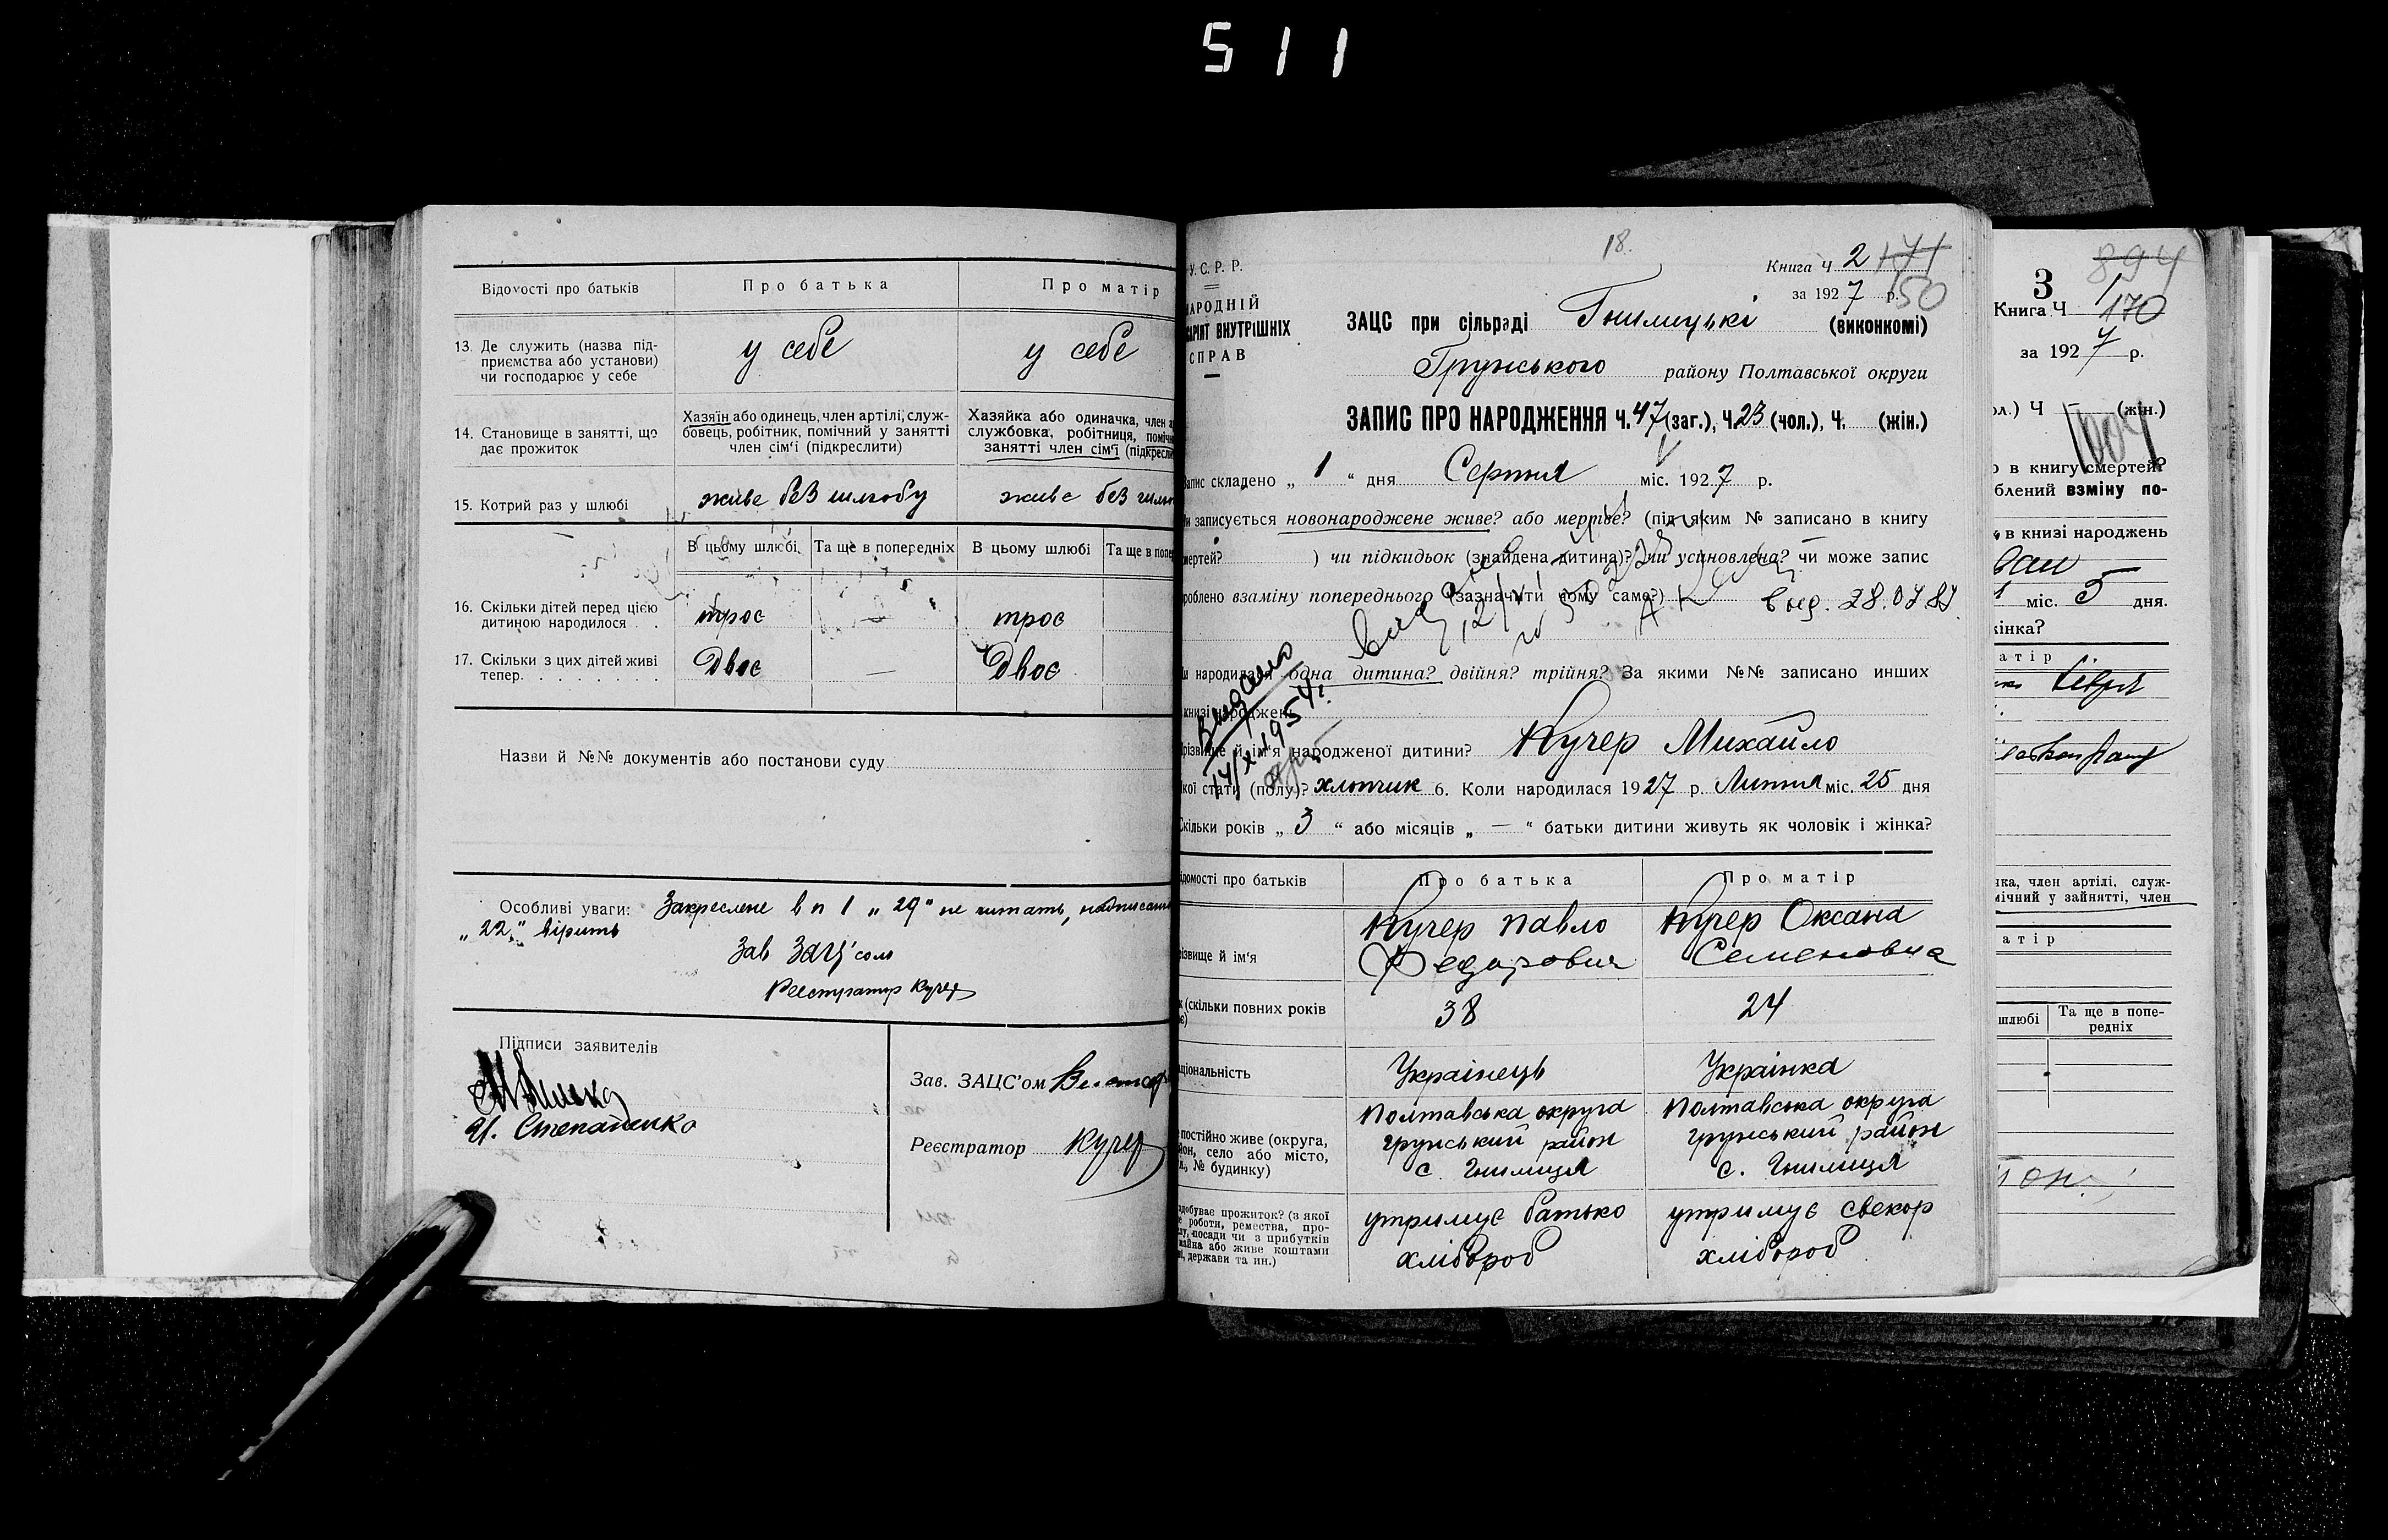 511
Відомості про батьків
Про батька
Про матір
13. Де служить (назва під-
приємства або установи)
чи господарює у себе
у себе
у себе
14. Становище в занятті, що
дає прожиток
Хазяїн або одинець, член артілі, служ-
бовець, робітник, помічний у занятті
член сім'ї (підкреслити)
Хазяйка або одиначка, член
службовка, робітниця,
занятті член сім'ї
15. Котрий раз у шлюбі
живе без шлюбу
живе без
В цьому шлюбі
Та ще в попередніх
В цьому шлюбі
Та ще в
16. Скільки дітей перед цією
дитиною народилося . .
троє
—
троє
17. Скільки з цих дітей живі
тепер. . . . . . . .
Двоє
—
Двоє
Назви й №№ документів або постанови суду
Особливі уваги: Закреслене в п 1 „29" не читать,
„22" вірить
Зав Зацсом
Реєстратор Кучер
Підписи заявителів
И. Степаненко
Зав. ЗАЦС'ом
Реєстратор Кучер
18.
У.С.Р.Р.
НАРОДНІЙ
ВНУТРІШНІХ
СПРАВ
Книга Ч 2 171
за 1927 р. 50
ЗАЦС при сільраді Гнилицькі (виконкомі)
Грунського району Полтавської округи
ЗАПИС ПРО НАРОДЖЕННЯ Ч. 47 (заг.), Ч. 23 (чол.), Ч. (жін.)
Запис складено „ 1 " дня Серпня міс. 1927 р.
Чи записується новонароджене живе? або мертве? (під яким № записано в книгу
смертей? ) чи підкидьок (знайдена дитина)? чи усиновлена? чи може запис
зроблено взаміну попереднього (зазначити чому саме?)
вид. 28.07 87
Чи народилася одна дитина? двійня? трійня? За якими №№ записано инших
книзі народжень
Видано
17/X 1954г.
Прізвище й ім'я народженої дитини? Кучер Михайло
якої статі (полу)? хлопчик 6. Коли народилася 1927 р. Липня міс. 25 дня
Скільки років „ 3 " або місяців „ — " батьки дитини живуть як чоловік і жінка?
Відомості про батьків
Про батька
Про матір
Прізвище й ім'я
Кучер Павло
Федорович
Кучер Оксана
Семеновна
(скільки повних років
38
24
Національність
Українець
Українка
постійно живе (округа,
район, село або місто,
№ будинку)
Полтавська округа
грунський район
с. Гнилиця
Полтавська округа
грунський район
с. Гнилиця
здобуває прожиток? (з якої
роботи, ремества, про-
посади чи з прибутків
майна або живе коштами
держави та ин.)
утримує батько
хлібороб
утримує свекор
хлібороб
3
894
Книга Ч 1
170
за 1927 р.
Ч (жін.)
в книгу смертей?
взміну по-
в книзі народжень
міс. 5 дня.
жінка?
атір
член артілі, служ-
у зайнятті, член
атір
шлюбі
Та ще в попе-
редніх